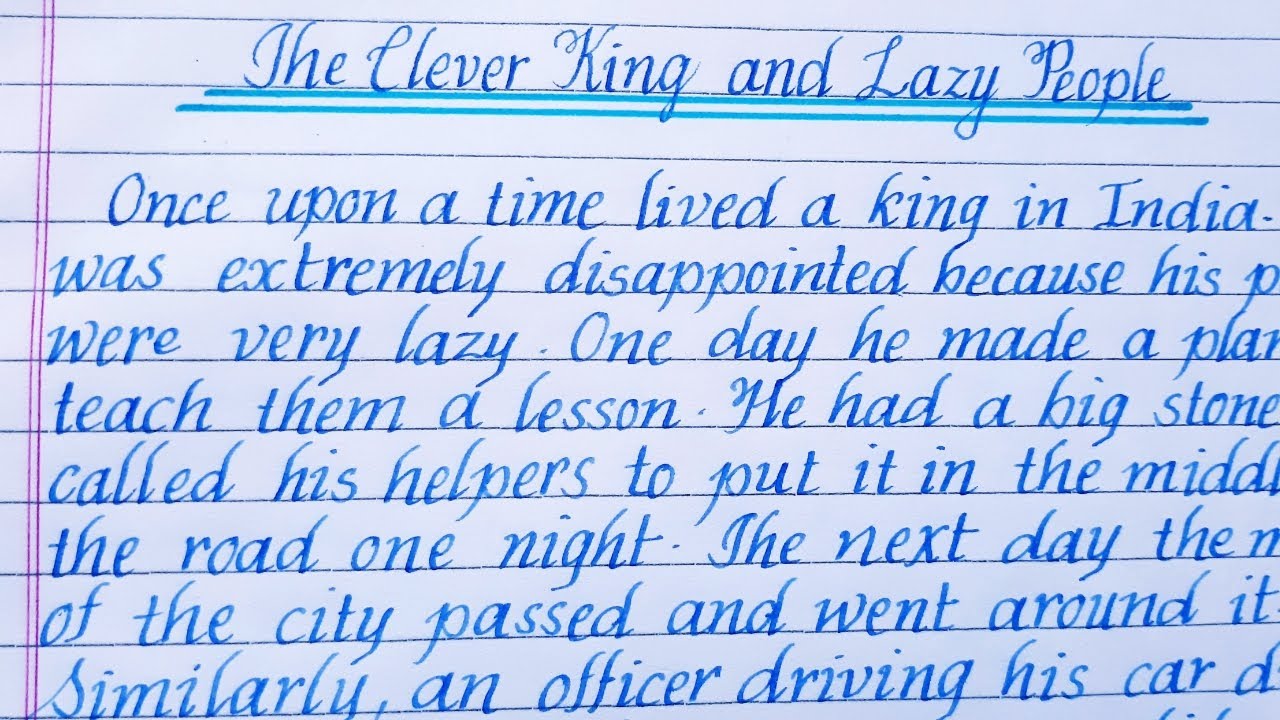 The Clever King and Lazy People
Once upon a time lived a king in India.
was extremely disappointed because his
were very lazy. One day he made a
teach them a lesson. He had a big stone
called his helpers to put it in the
the road one night. The next day the
of the city passed and went around it.
Similarly, an officer driving his car